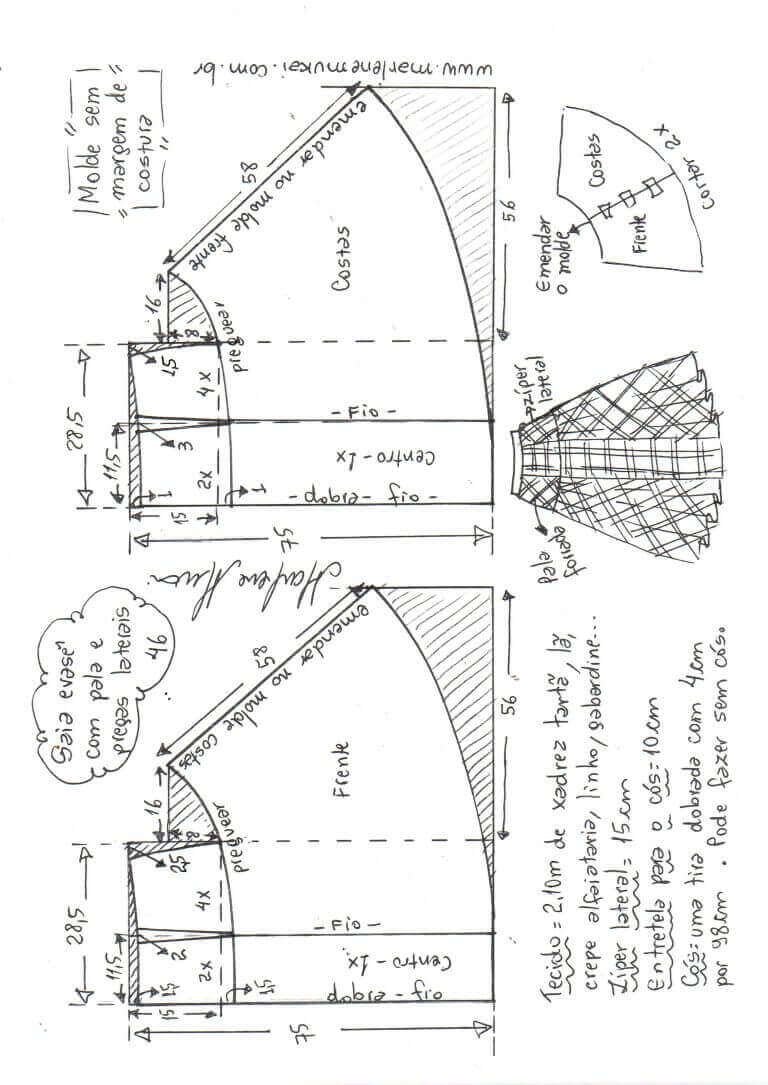 Saia evasê
com pala e
pregas laterais
46
"Molde sem"
"margem de"
"costura"
www.marlenemukai.com.br
28,5
11,5
16
58
emendar no molde costas
15
1,5
2
8
2x
4x
preguear
1,5
75
Frente
- Fio -
Centro - 1x
dobra - fio
56
Marlene Mukai
28,5
11,5
16
58
emendar no molde frente
15
1
3
8
2x
4x
preguear
1
75
Costas
- Fio -
Centro - 1x
- dobra - fio -
56
Tecido = 2,10m de xadrez tartã, lã,
crepe alfaiataria, linho, gabardine...
Ziper lateral = 15cm
Entretela para o cós = 10cm
Cós: uma tira dobrada com 4cm
por 98cm. Pode fazer sem cós.
pala
forrada
zíper
lateral
Emendar
o molde
Costas
Frente
Cortar 2x